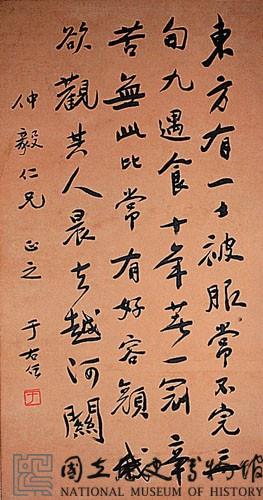 東方有一士被服常不完三
旬九遇食十年著一冠辛
苦無此比常有好容顏我
欲觀其人晨去越河關
仲毅仁兄 正之 于右任
國立歷史博物館
NATIONAL MUSEUM OF HISTORY